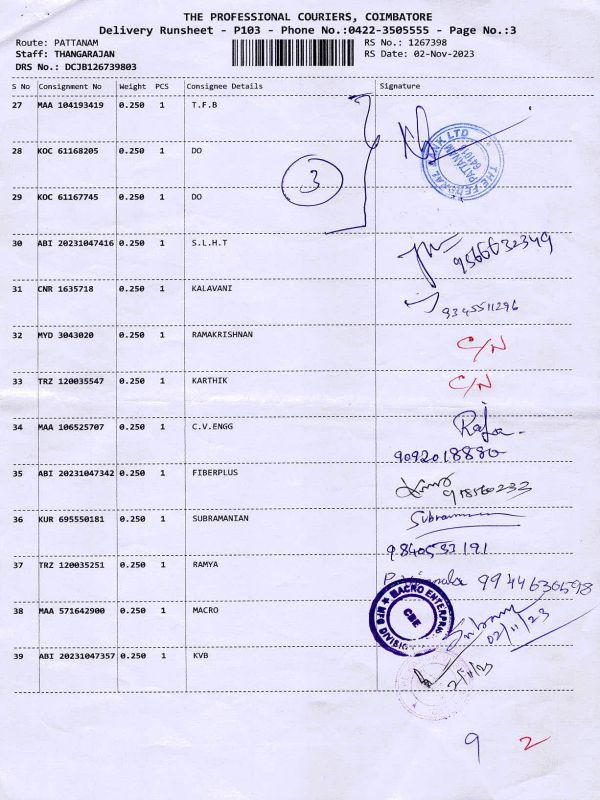 THE PROFESSIONAL COURIERS, COIMBATORE
Delivery Runsheet - P103 - Phone No.:0422-3505555 - Page No.:3
Route: PATTANAM RS No.: 1267398
Staff: THANGARAJAN RS Date: 02-Nov-2023
DRS No.: DCJB126739803
S No Consignment No Weight PCS Consignee Details Signature
27 MAA 104193419 0.250 1 T.F.B
THE FEDERAL BANK LTD
PATTANAM
28 KOC 61168205 0.250 1 DO
3
29 KOC 61167745 0.250 1 DO
30 ABI 20231047416 0.250 1 S.L.H.T
9566632349
31 CNR 1635718 0.250 1 KALAVANI
9345511296
32 MYD 3043020 0.250 1 RAMAKRISHNAN C/N
33 TRZ 120035547 0.250 1 KARTHIK C/N
34 MAA 106525707 0.250 1 C.V.ENGG Raja
9092018880
35 ABI 20231047342 0.250 1 FIBERPLUS
36 KUR 695550181 0.250 1 SUBRAMANIAN
9840533191
37 TRZ 120035251 0.250 1 RAMYA 9944630598
38 MAA 571642900 0.250 1 MACRO
MACRO ENTERPRIS
CBE
02/11/23
39 ABI 20231047357 0.250 1 KVB
2/11/23
9 2